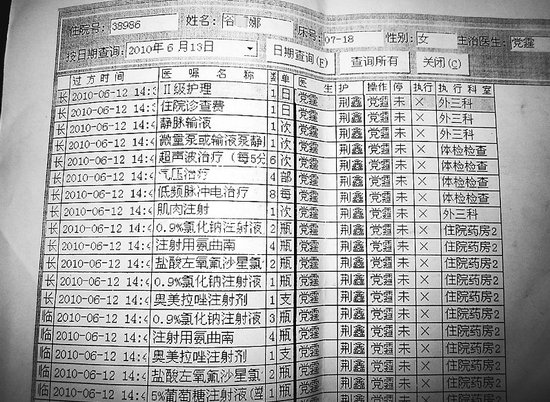 住院号: 38986 姓名: 谷 娜 床号: 07-18 性别: 女 主治医生: 党霾
按日期查询: 2010年 6月13日 日期查询(F) 查询所有 关闭(C)
过方时间 医嘱名称 数 单 医生 护 操作 停 执行 执行科室
长 2010-06-12 14:4 Ⅱ级护理 1 日 党霾 荆鑫 党霾 未 × 外三科
长 2010-06-12 14:4 住院诊查费 1 日 党霾 荆鑫 党霾 未 × 外三科
长 2010-06-12 14:4 静脉输液 1 次 党霾 荆鑫 党霾 未 × 外三科
长 2010-06-12 14:4 微量泵或输液泵静 1 次 党霾 荆鑫 党霾 未 × 外三科
长 2010-06-12 14:4 超声波治疗（每5分 6 次 党霾 荆鑫 党霾 未 × 体检检查
长 2010-06-12 14:4 气压治疗 4 部 党霾 荆鑫 党霾 未 × 体检检查
长 2010-06-12 14:4 低频脉冲电治疗 8 每 党霾 荆鑫 党霾 未 × 体检检查
长 2010-06-12 14:4 肌肉注射 1 次 党霾 荆鑫 党霾 未 × 外三科
长 2010-06-12 14:4 0.9%氯化钠注射液 2 瓶 党霾 荆鑫 党霾 未 × 住院药房2
长 2010-06-12 14:4 注射用氨曲南 4 瓶 党霾 荆鑫 党霾 未 × 住院药房2
长 2010-06-12 14:4 盐酸左氧氟沙星氯 2 瓶 党霾 荆鑫 党霾 未 × 住院药房2
长 2010-06-12 14:4 0.9%氯化钠注射液 1 瓶 党霾 荆鑫 党霾 未 × 住院药房2
长 2010-06-12 14:4 奥美拉唑注射剂 1 支 党霾 荆鑫 党霾 未 × 住院药房2
临 2010-06-12 14:4 0.9%氯化钠注射液 3 瓶 党霾 荆鑫 党霾 未 × 住院药房2
临 2010-06-12 14:4 注射用氨曲南 4 瓶 党霾 荆鑫 党霾 未 × 住院药房2
临 2010-06-12 14:4 奥美拉唑注射剂 1 支 党霾 荆鑫 党霾 未 × 住院药房2
临 2010-06-12 14:4 盐酸左氧氟沙星氯 2 瓶 党霾 荆鑫 党霾 未 × 住院药房2
临 2010-06-12 14:4 5%葡萄糖注射液 1 瓶 党霾 荆鑫 党霾 未 × 住院药房2